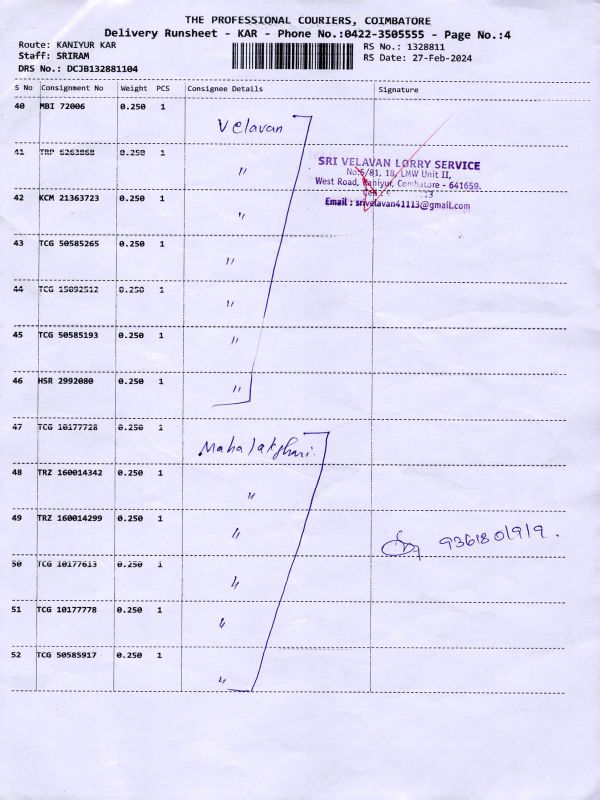 THE PROFESSIONAL COURIERS, COIMBATORE
Delivery Runsheet - KAR - Phone No.:0422-3505555 - Page No.:4
Route: KANIYUR KAR RS No.: 1328811
Staff: SRIRAM RS Date: 27-Feb-2024
DRS No.: DCJB132881104
S No Consignment No Weight PCS Consignee Details Signature
40 MBI 72006 0.250 1 Velavan
41 TRP 6263868 0.250 1 "
SRI VELAVAN LORRY SERVICE
No.5/81, 18, LMW Unit II,
West Road, Kaniyur, Coimbatore - 641659.
Email : srivelavan41113@gmail.com
42 KCM 21363723 0.250 1 "
43 TCG 50585265 0.250 1 "
44 TCG 15092512 0.250 1 "
45 TCG 50585193 0.250 1 "
46 HSR 2992080 0.250 1 "
47 TCG 10177728 0.250 1 Mahalakshmi
48 TRZ 160014342 0.250 1 "
49 TRZ 160014299 0.250 1 " 9361801919.
50 TCG 10177613 0.250 1 "
51 TCG 10177778 0.250 1 "
52 TCG 50585917 0.250 1 "